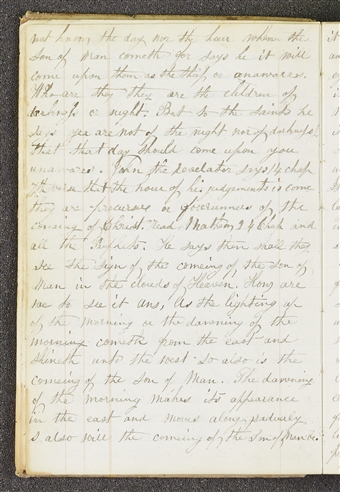 not know the day nor the hour when the
Son of Man cometh for says he it will
come upon them as the thief or unawares.
Who are they they are the children of
darkness or night. But to the saints he
says yea are not of the night nor of darkness
that that day should come upon you
unawares. John the revelator says 14 chap
7th verse that the hour of his judgements is come
they are or forerunners of the
comeing of Christ. read Mathew 24 Chap and
all the Prophets. He says then shall they
see the sign of the comeing of the son of
Man in the clouds of Heaven. How are
we to see it ans, As the lighting up
of the morning or the dawning of the
morning cometh from the east and
shineth unto the west so also is the
comeing of the Son of Man. The dawning
of the morning makes its appearance
in the east and moves along gradually
so also will the comeing of the son of man be.